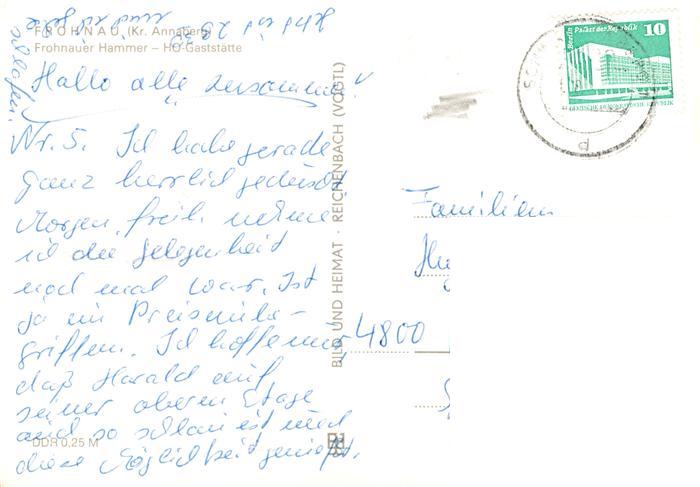 FROHNAU, (Kr. Annaberg)
Frohnauer Hammer – HO-Gaststätte
Hallo alle zusammen
Nr. 5. Ich habe gerade
ganz herrlich geduscht
Morgen früh nehme
ich die Gelegenheit
noch mal war. Ist
ja im Preis inbe-
griffen. Ich hoffe nur
daß Harald auf
seiner oberen Etage
auch so schlau ist und
diese Möglichkeit genießt.
schlafen.
DDR 0,25 M
BILD UND HEIMAT · REICHENBACH (VOGTL)
Berlin Palast der Republik 10
DEUTSCHE DEMOKRATISCHE REPUBLIK
Familien
4800